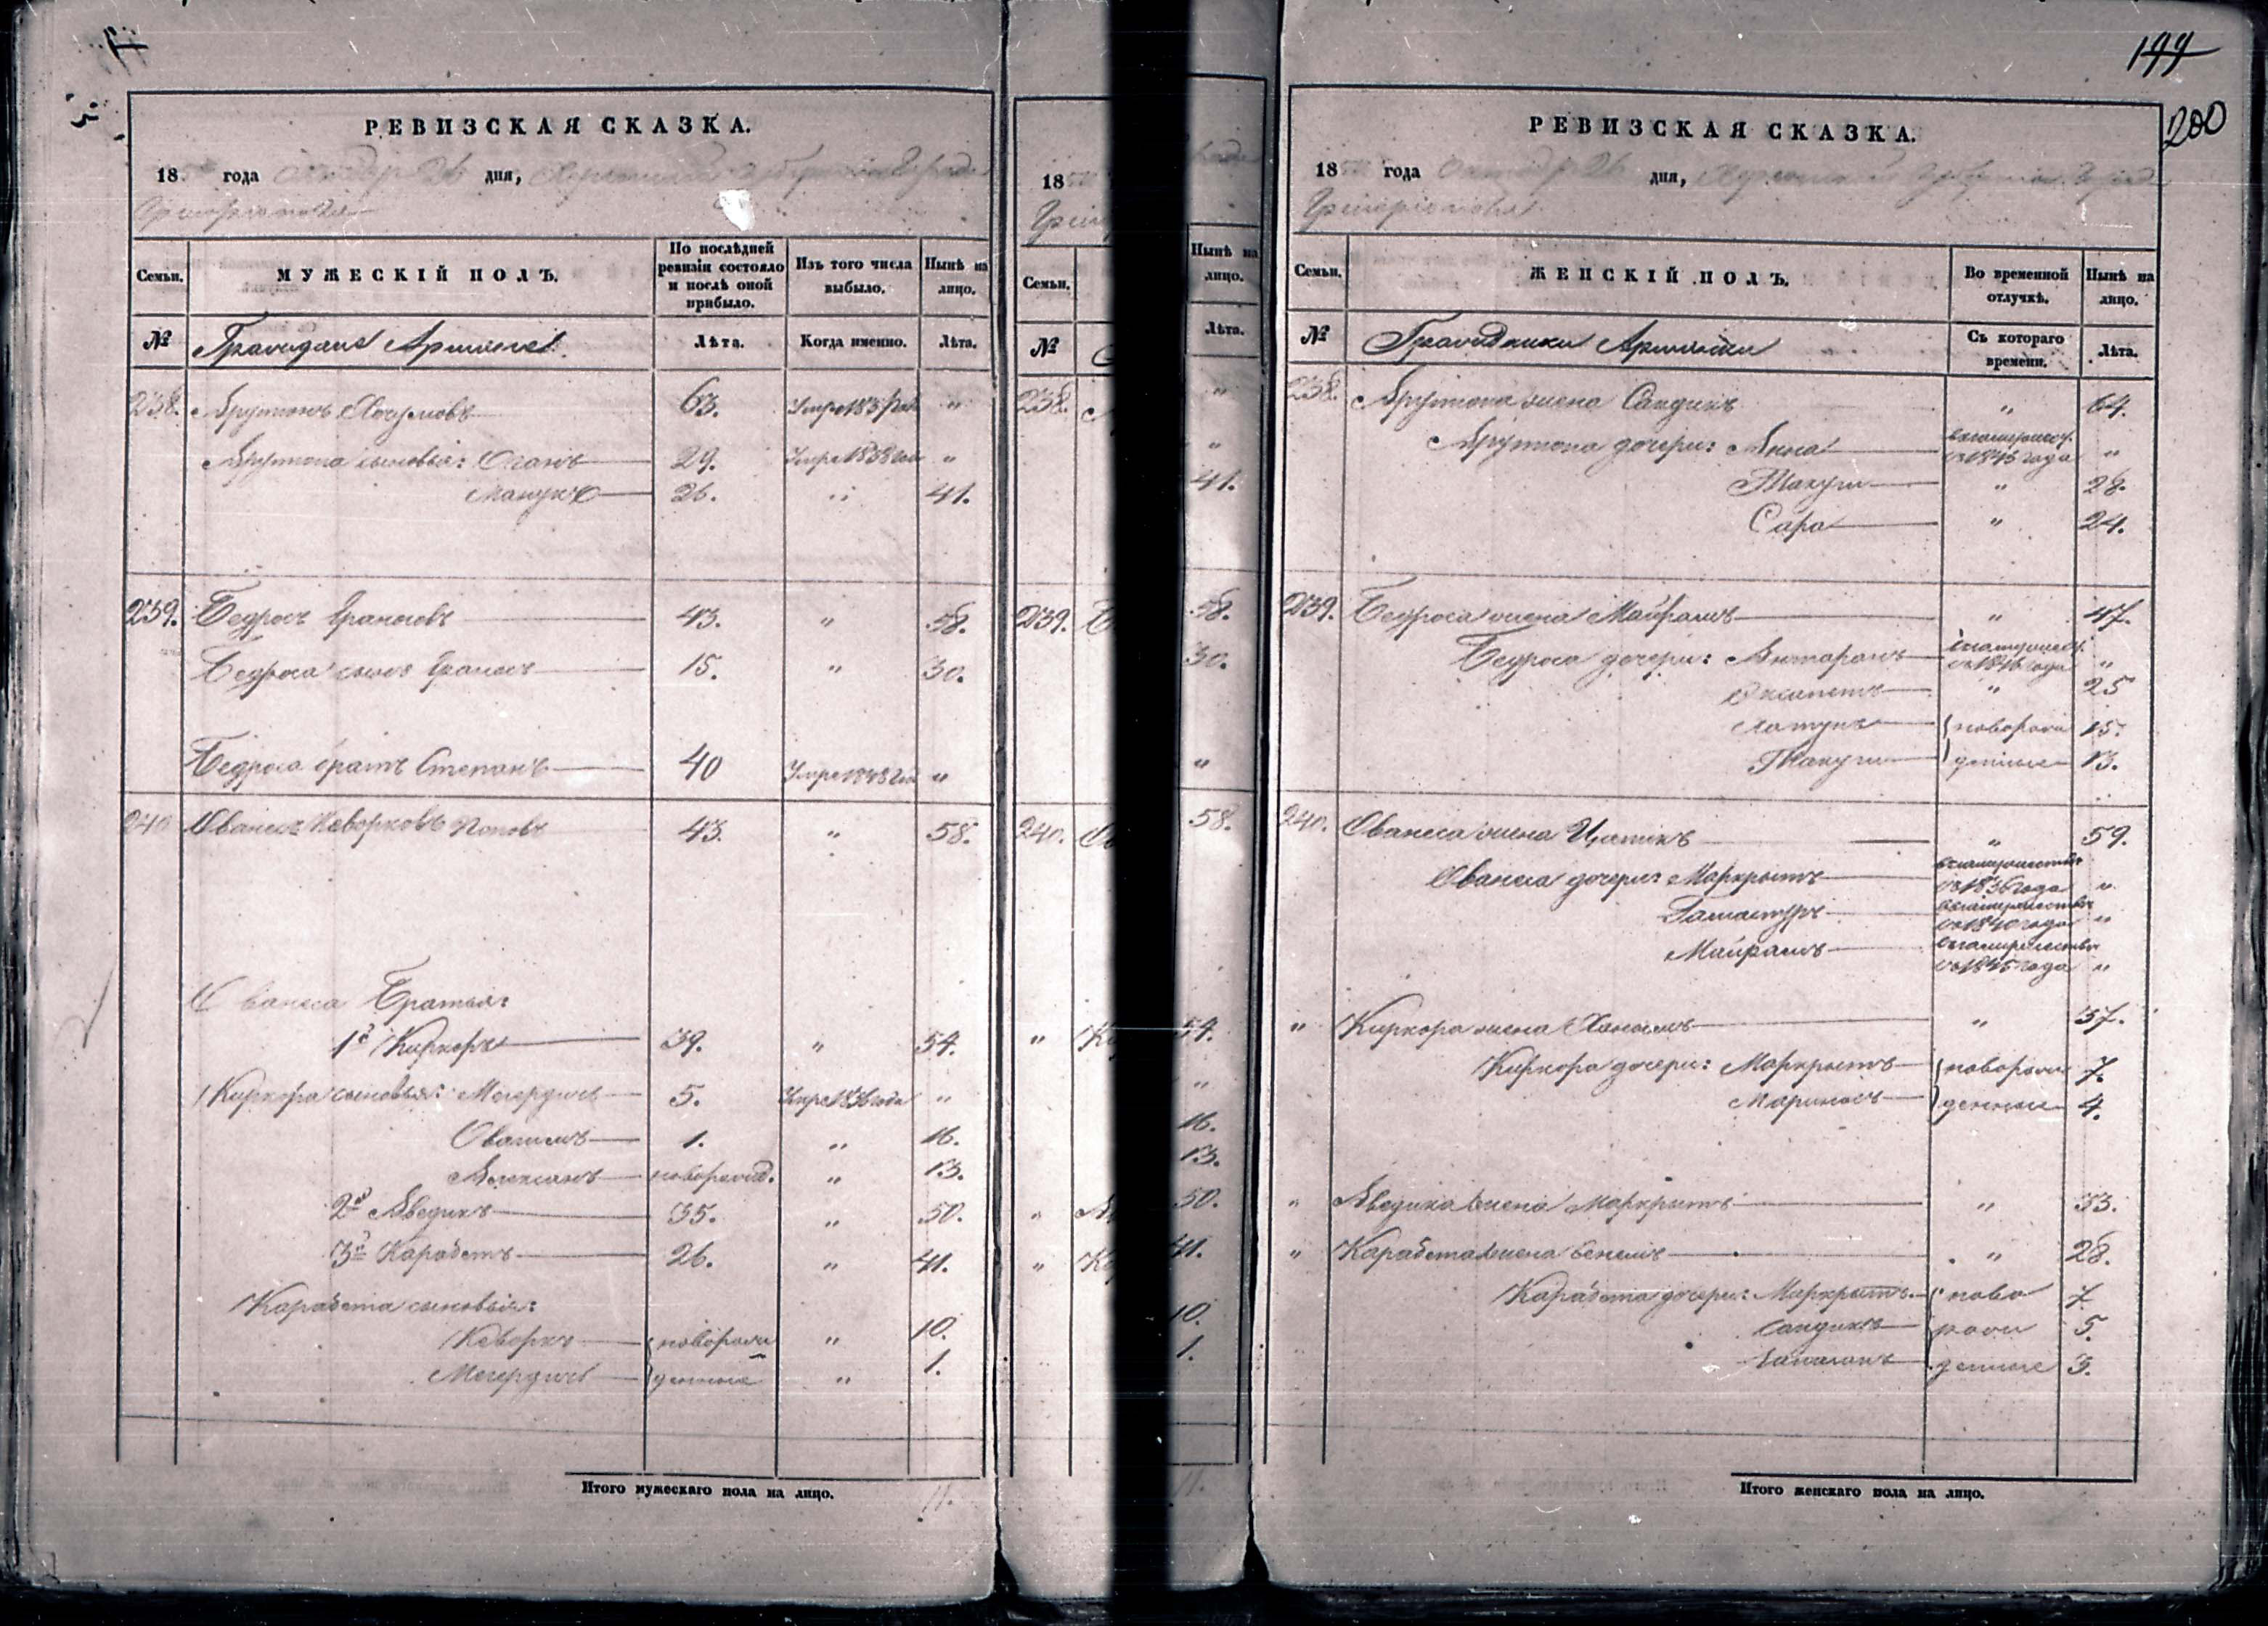 199
200
РЕВИЗСКАЯ СКАЗКА.
1850 года Октября 26 дня, Херсонской Губернии Города
Григоріополя
Семьи. МУЖЕСКІЙ ПОЛЪ. По послѣдней ревизіи состояло и послѣ оной прибыло. Изъ того числа выбыло. Нынѣ на лицо.
№ Граждане Армяне Лѣта. Когда именно. Лѣта.
238. Арутюнъ 63. Умре 183 года "
Арутюна сыновья: Оганъ 29. Умре 1838 года "
Манукъ 26. " 41.
239. Бедросъ 43. " 58.
Бедроса сынъ 15. " 30.
Бедроса братъ Степанъ 40 Умре 1848 года "
240 Ованесъ Кеворковъ Поповъ 43. " 58.
Ованеса Братья:
1й Киркоръ 39. " 54.
Киркора сыновья: Мегердичь 5. Умре 1836 года "
Овагимъ 1. " 16.
Алексанъ новорожд. " 13.
2й Аведикъ 35. " 50.
3й Карабетъ 26. " 41.
Карабета сыновья:
Кеворкъ новорож " 10.
Мегердичь денные " 1.
Итого мужескаго пола на лицо. 11.
18
Семьи.
№
238.
239.
240.
Нынѣ на лицо.
Лѣта.
"
"
41.
58.
30.
"
58.
54.
"
16.
13.
50.
41.
10.
1.
11.
РЕВИЗСКАЯ СКАЗКА.
1850 года Октября 26 дня, Херсонской Губерніи Города
Григоріополя
Семьи. ЖЕНСКІЙ ПОЛЪ. Во временной отлучкѣ. Нынѣ на лицо.
№ Гражданки Армянки Съ котораго времени. Лѣта.
238. Арутюна жена Сандухъ " 64.
Арутюна дочери: Анна взамужест. съ 1845 года "
Такуги " 28.
Сара " 24.
239. Бедроса жена Майрамъ " 47.
Бедроса дочери: Антарамъ взамужест. съ 1846 года "
" 25
Хатунъ новорож 15.
Такуги денные 13.
240. Ованеса жена Цатикъ " 59.
Ованеса дочери: Маркритъ взамужествѣ съ 1836 года "
взамужествѣ съ 1840 года "
Майрамъ взамужествѣ съ 1845 года "
" Киркора жена Ханымъ " 37.
Киркора дочери: Маркритъ новорож 7.
денные 4.
" Аведика жена Маркритъ " 33.
" Карабета жена " 28.
Карабета дочери: Маркритъ ново 7
Сандухъ рож 5.
денные 3.
Итого женскаго пола на лицо.